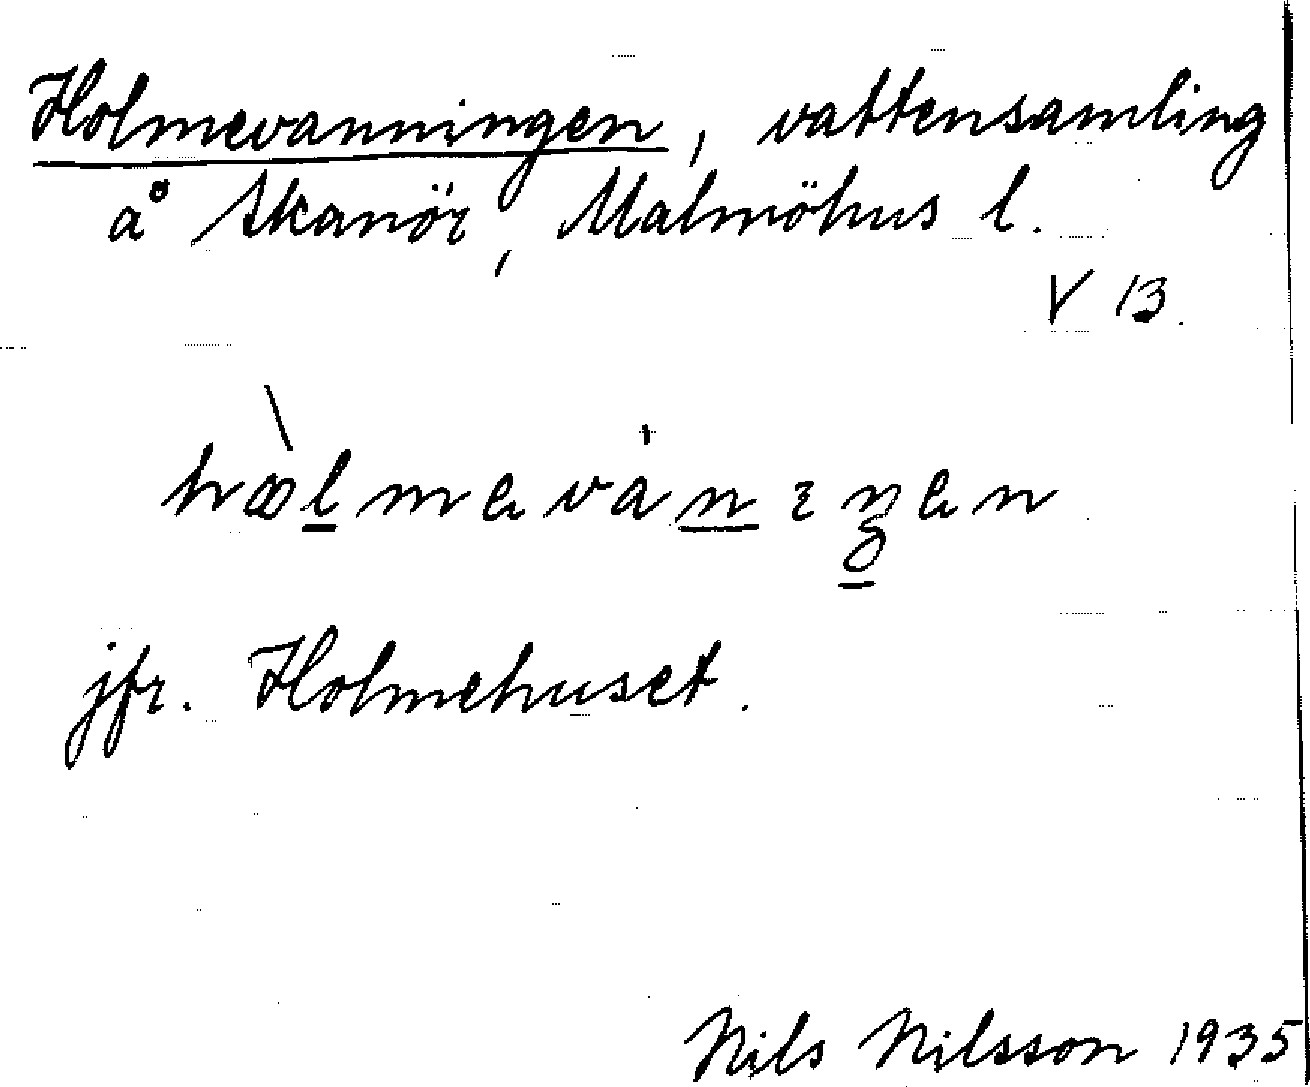 Holmevanningen, vattensamling
å Skanör, Malmöhus l.
V 13.
jfr. Holmehuset.
Nils Nilsson 1935